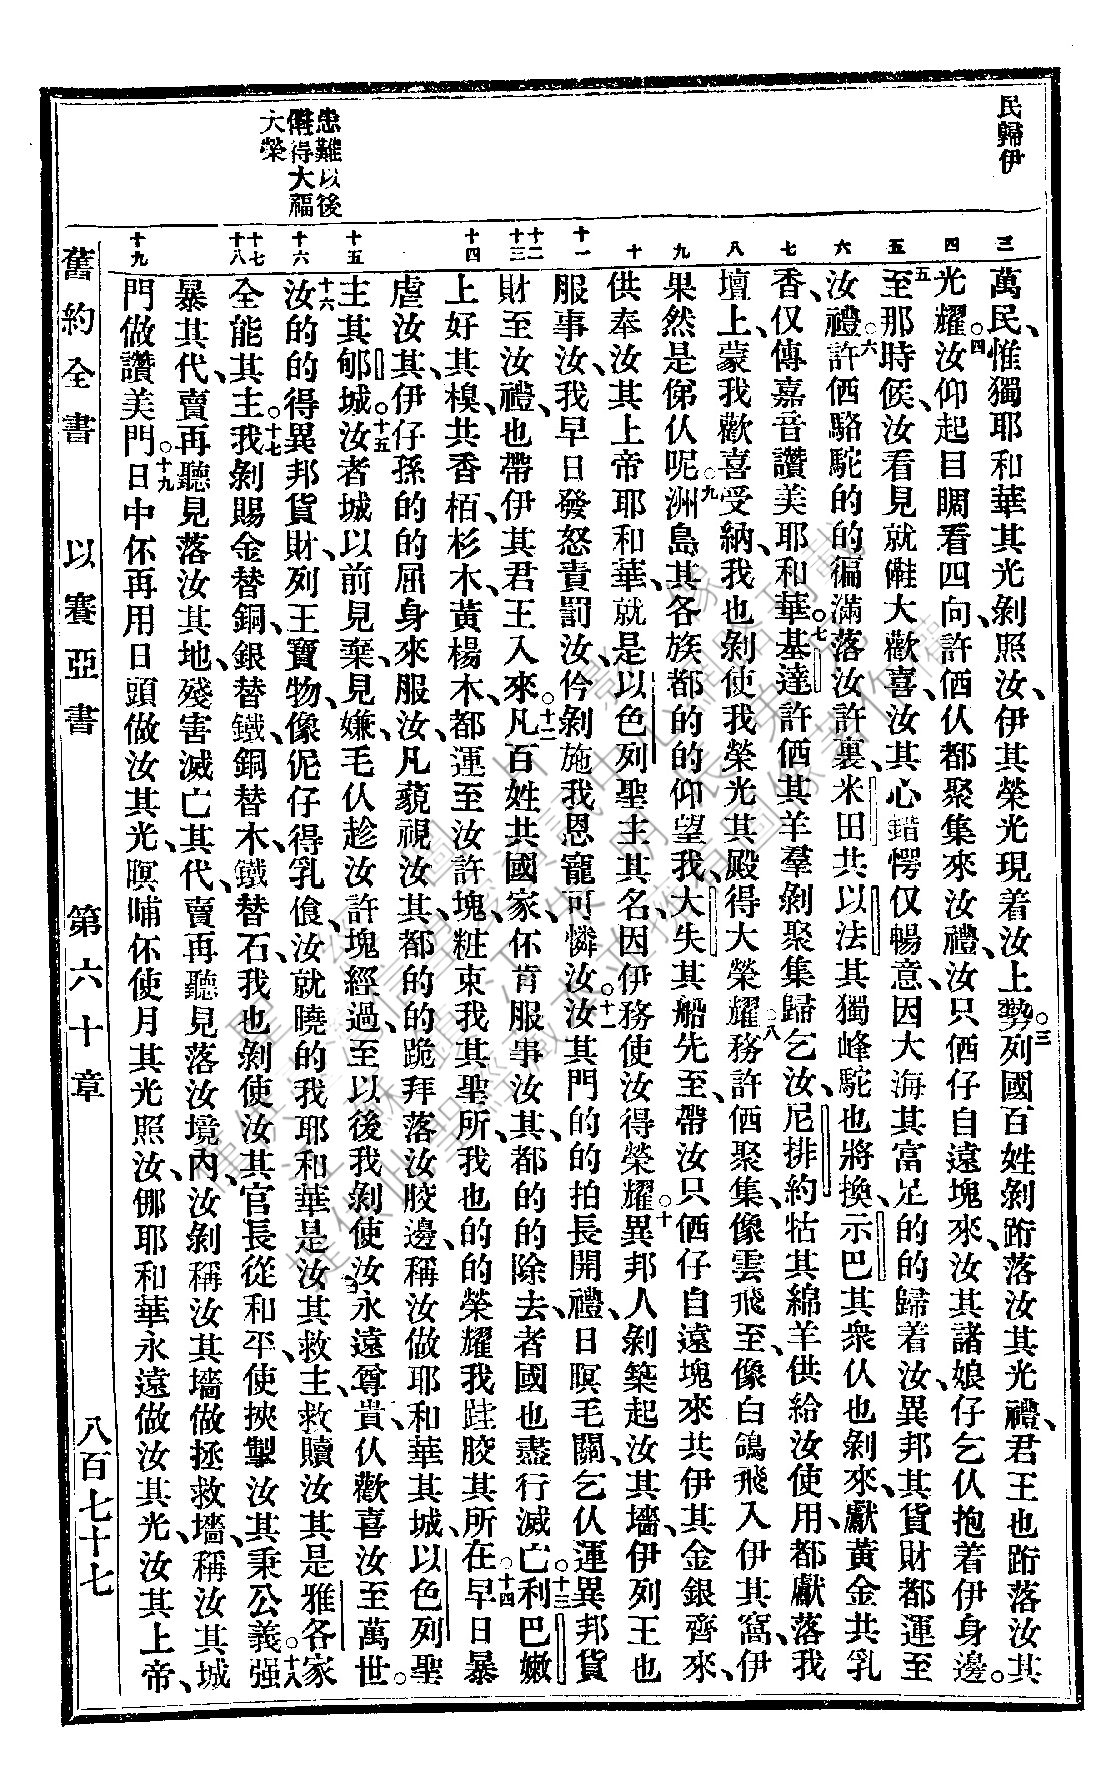 民歸伊
患難以後
僫得大福
大榮
三
四
五
六
七
八
九
十
十一
十二
十三
十四
十五
十六
十七
十八
十九
萬民、惟獨耶和華其光剝照汝、伊其榮光現着汝上。三勢列國百姓剝跡落汝其光禮、君王也跡落汝其
光耀。四汝仰起目睭看四向、許俩仈都聚集來汝禮、汝只俩仔自遠塊來、汝其諸娘仔乞仈抱着伊身邊。
五至那時候、汝看見就儺大歡喜、汝其心錯愕仅暢意、因大海其富足的的歸着汝、異邦其貨財都運至
汝禮。六許俩駱駝的的徧滿落汝許裏、米田共以法其獨峰駝也將換、示巴其衆仈也剝來、獻黃金共乳
香、仅傳嘉音讚美耶和華。七基達許俩其羊羣剝聚集歸乞汝、尼排約牯其綿羊供給汝使用、都獻落我
壇上、蒙我歡喜受納、我也剝使我榮光其殿得大榮耀。八務許俩聚集、像雲飛至、像白鴿飛入伊其窩、伊
果然是俤仈呢。九洲島其各族都的的仰望我、大失其船先至、帶汝只俩仔自遠塊來、共伊其金銀齊來、
供奉汝其上帝耶和華、就是以色列聖主其名、因伊務使汝得榮耀。十異邦人剝築起汝其墻、伊列王也
服事汝、我早日發怒責罰汝、仱剝施我恩寵可憐汝。十一汝其門的的拍長開禮、日暝毛關、乞仈運異邦貨
財至汝禮、也帶伊其君王入來。十二凡百姓共國家、伓肯服事汝其、都的的除去、者國也盡行滅亡。十三利巴嫩
上好其模、共香栢、杉木、黃楊木、都運至汝許塊、粧束我其聖所、我也的的榮耀我跬胶其所在。十四早日暴
虐汝其、伊仔孫的的屈身來服汝、凡藐視汝其、都的的跪拜落汝胶邊、稱汝做耶和華其城、以色列聖
主其郇城。十五汝者城、以前見棄、見嫌、毛仈趁汝許塊經過、至以後我剝使汝永遠尊貴、仈歡喜汝至萬世。
十六汝的的得異邦貨財、列王寶物、像伲仔得乳飡、汝就曉的我耶和華是汝其救主、救贖汝其是雅各家
全能其主。十七我剝賜金替銅、銀替鐵、銅替木、鐵替石、我也剝使汝其官長從和平、使挾掣汝其秉公義。十八强
暴其代、賣再聽見落汝其地、殘害滅亡其代、賣再聽見落汝境內、汝剝稱汝其墻做拯救墻、稱汝其城
門做讚美門。十九日中伓再用日頭做汝其光、暝晡伓使月其光照汝、㑚耶和華永遠做汝其光、汝其上帝、
舊約全書 以賽亞書 第六十章 八百七十七